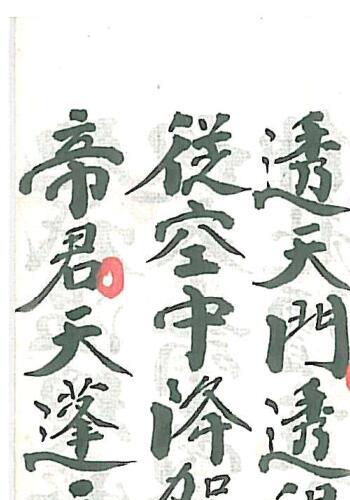 透天門透
從空中降
帝君天蓬